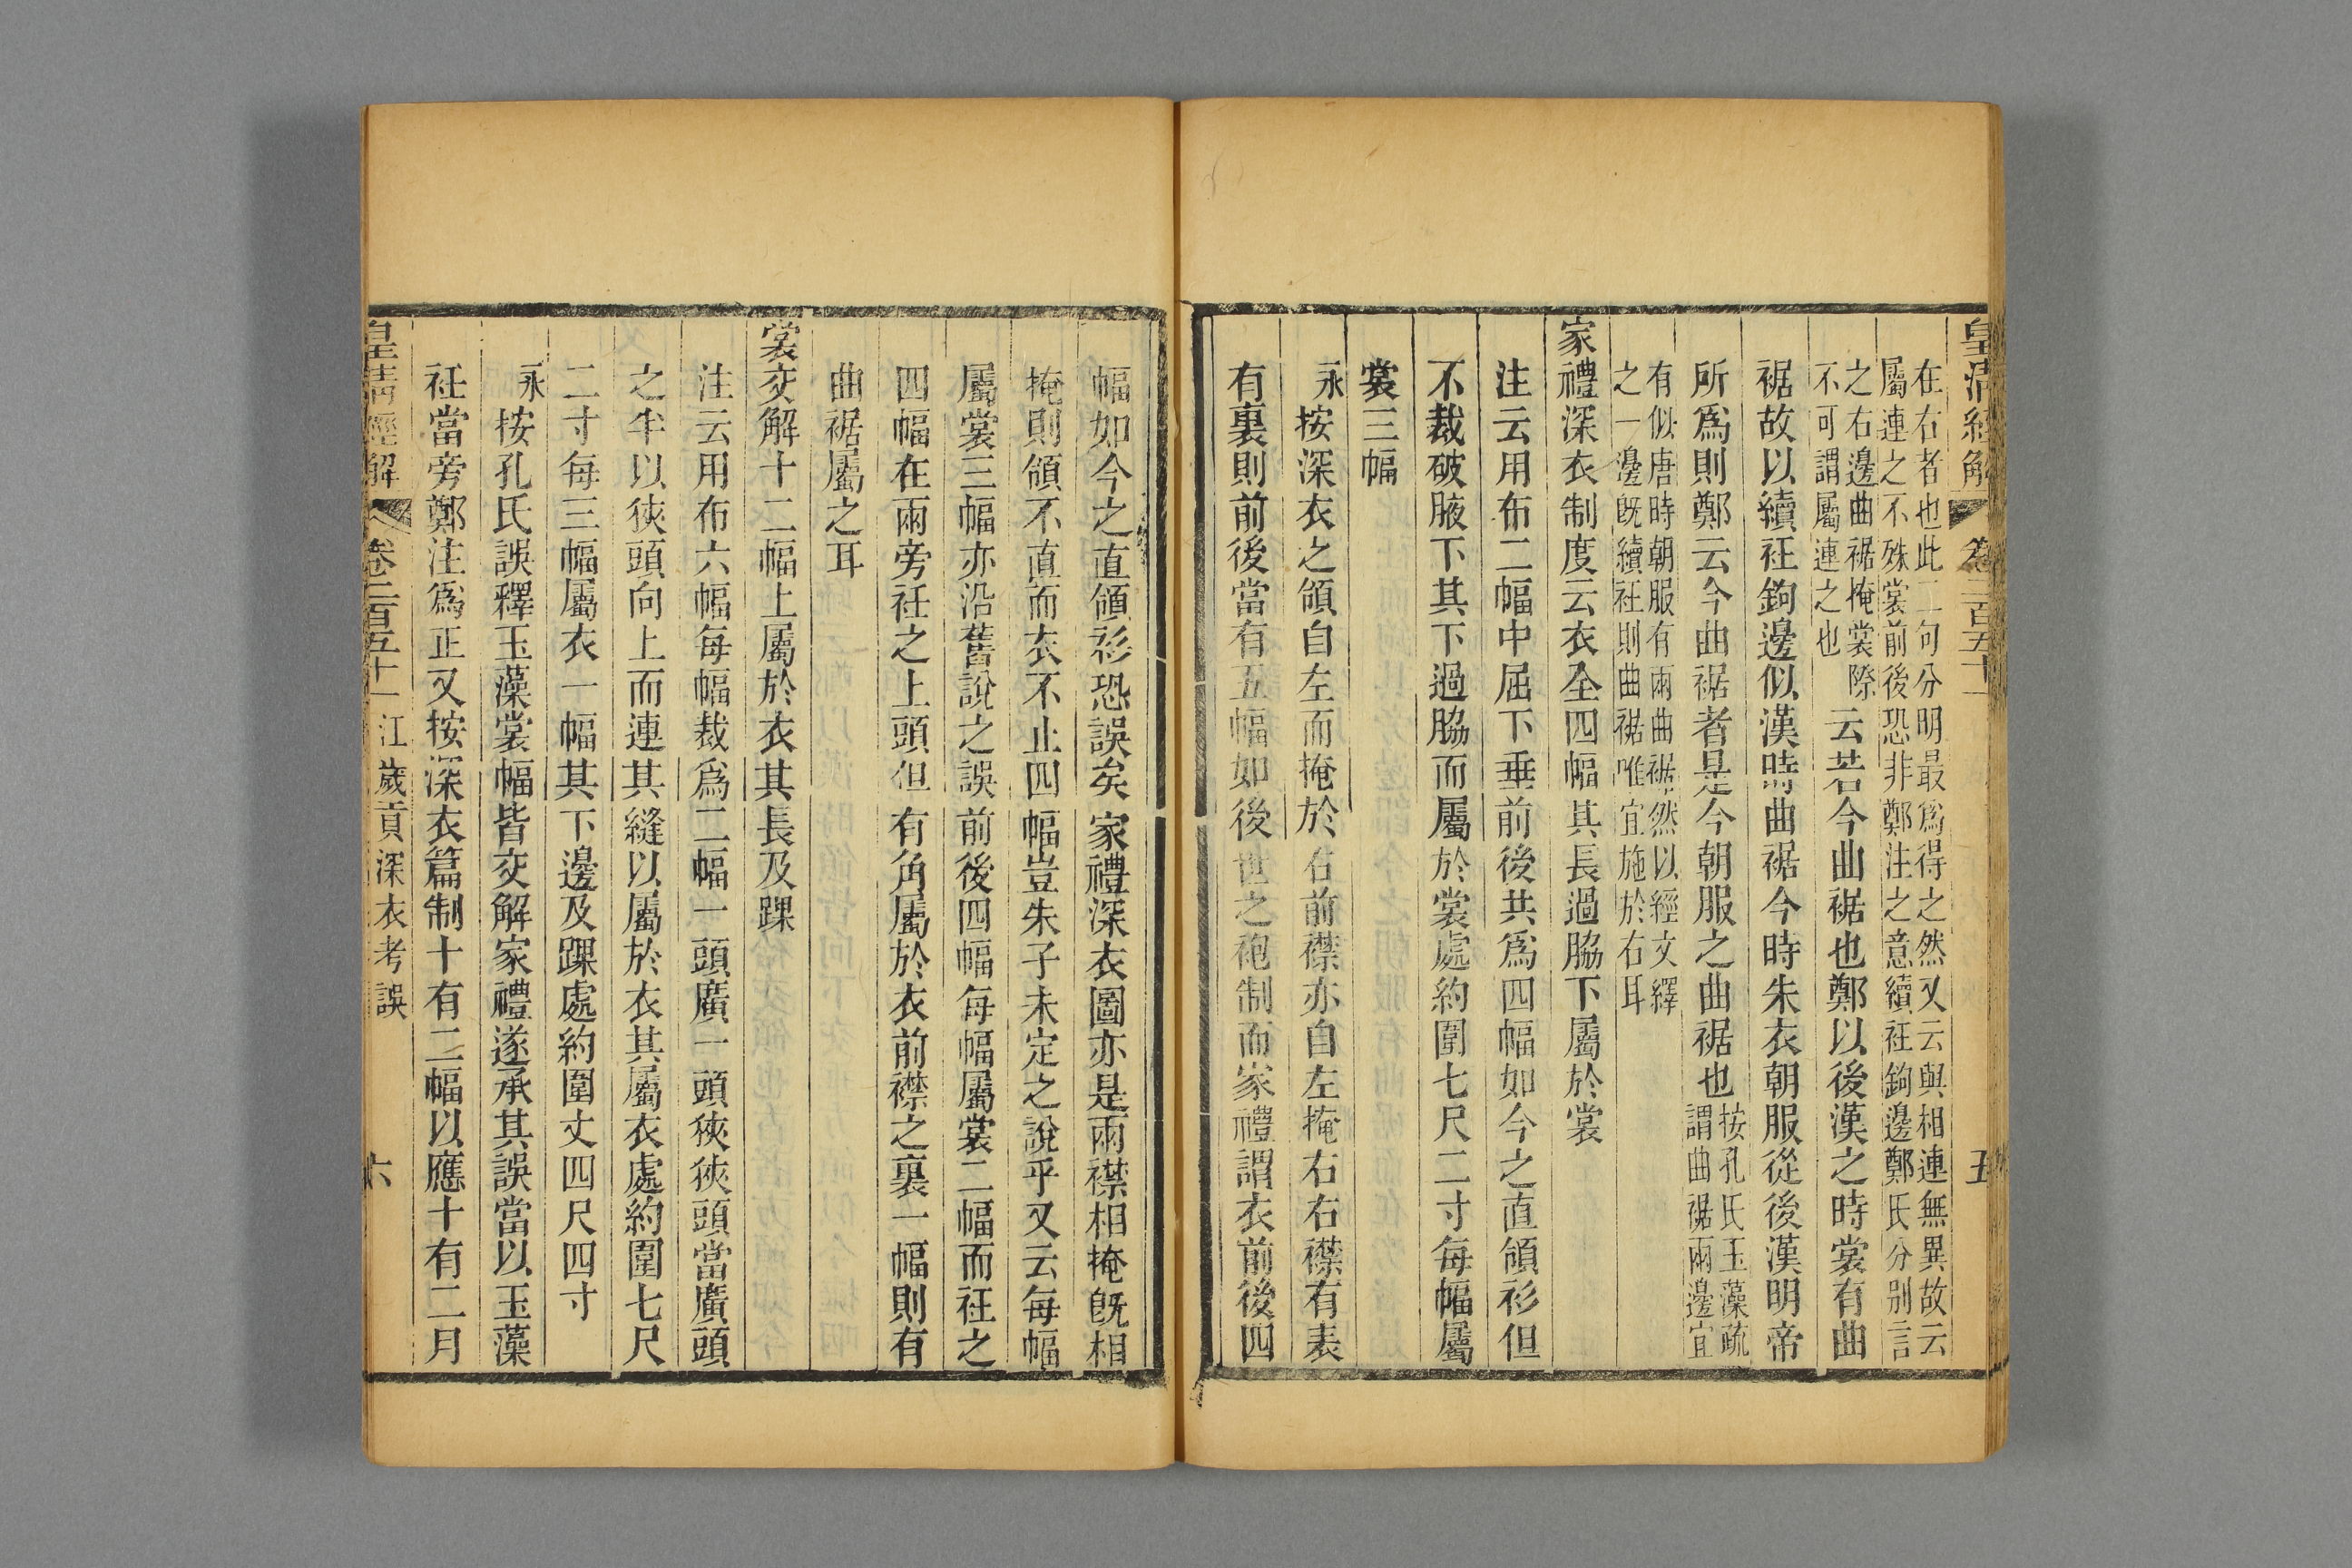 皇清經解 卷二百五十一 五
在右者也此二句分明最爲得之然又云與相連無異故云
屬連之不殊裳前後恐非鄭注之意續衽鉤邊鄭氏分别言
之右邊曲裾掩裳際
不可謂屬連之也
云若今曲裾也鄭以後漢之時裳有曲
裾故以續衽鉤邊似漢時曲裾今時朱衣朝服從後漢明帝
所爲則鄭云今曲裾者是今朝服之曲裾也
按孔氏玉藻疏
謂曲裾兩邊宜
有似唐時朝服有兩曲裾然以經文繹
之一邊既續衽則曲裾唯宜施於右耳
家禮深衣制度云衣全四幅其長過脇下屬於裳
注云用布二幅中屈下垂前後共爲四幅如今之直領衫但
不裁破腋下其下過脇而屬於裳處約圍七尺二寸每幅屬
裳三幅
永按深衣之領自左而掩於右前襟亦自左掩右右襟有表
有裏則前後當有五幅如後世之袍制而家禮謂衣前後四
幅如今之直領衫恐誤矣家禮深衣圖亦是兩襟相掩旣相
掩則領不直而衣不止四幅豈朱子未定之說乎又云每幅
屬裳三幅亦沿舊說之誤前後四幅每幅屬裳二幅而衽之
四幅在兩旁衽之上頭但有角屬於衣前襟之裏一幅則有
曲裾屬之耳
裳交解十二幅上屬於衣其長及踝
注云用布六幅每幅裁爲二幅一頭廣一頭狹狹頭當廣頭
之半以狹頭向上而連其縫以屬於衣其屬衣處約圍七尺
二寸每三幅屬衣一幅其下邊及踝處約圍丈四尺四寸
永按孔氏誤釋玉藻裳幅皆交解家禮遂承其誤當以玉藻
衽當旁鄭注爲正又按深衣篇制十有二幅以應十有二月
皇清經解 卷二百五十一 江歲貢深衣考誤 六